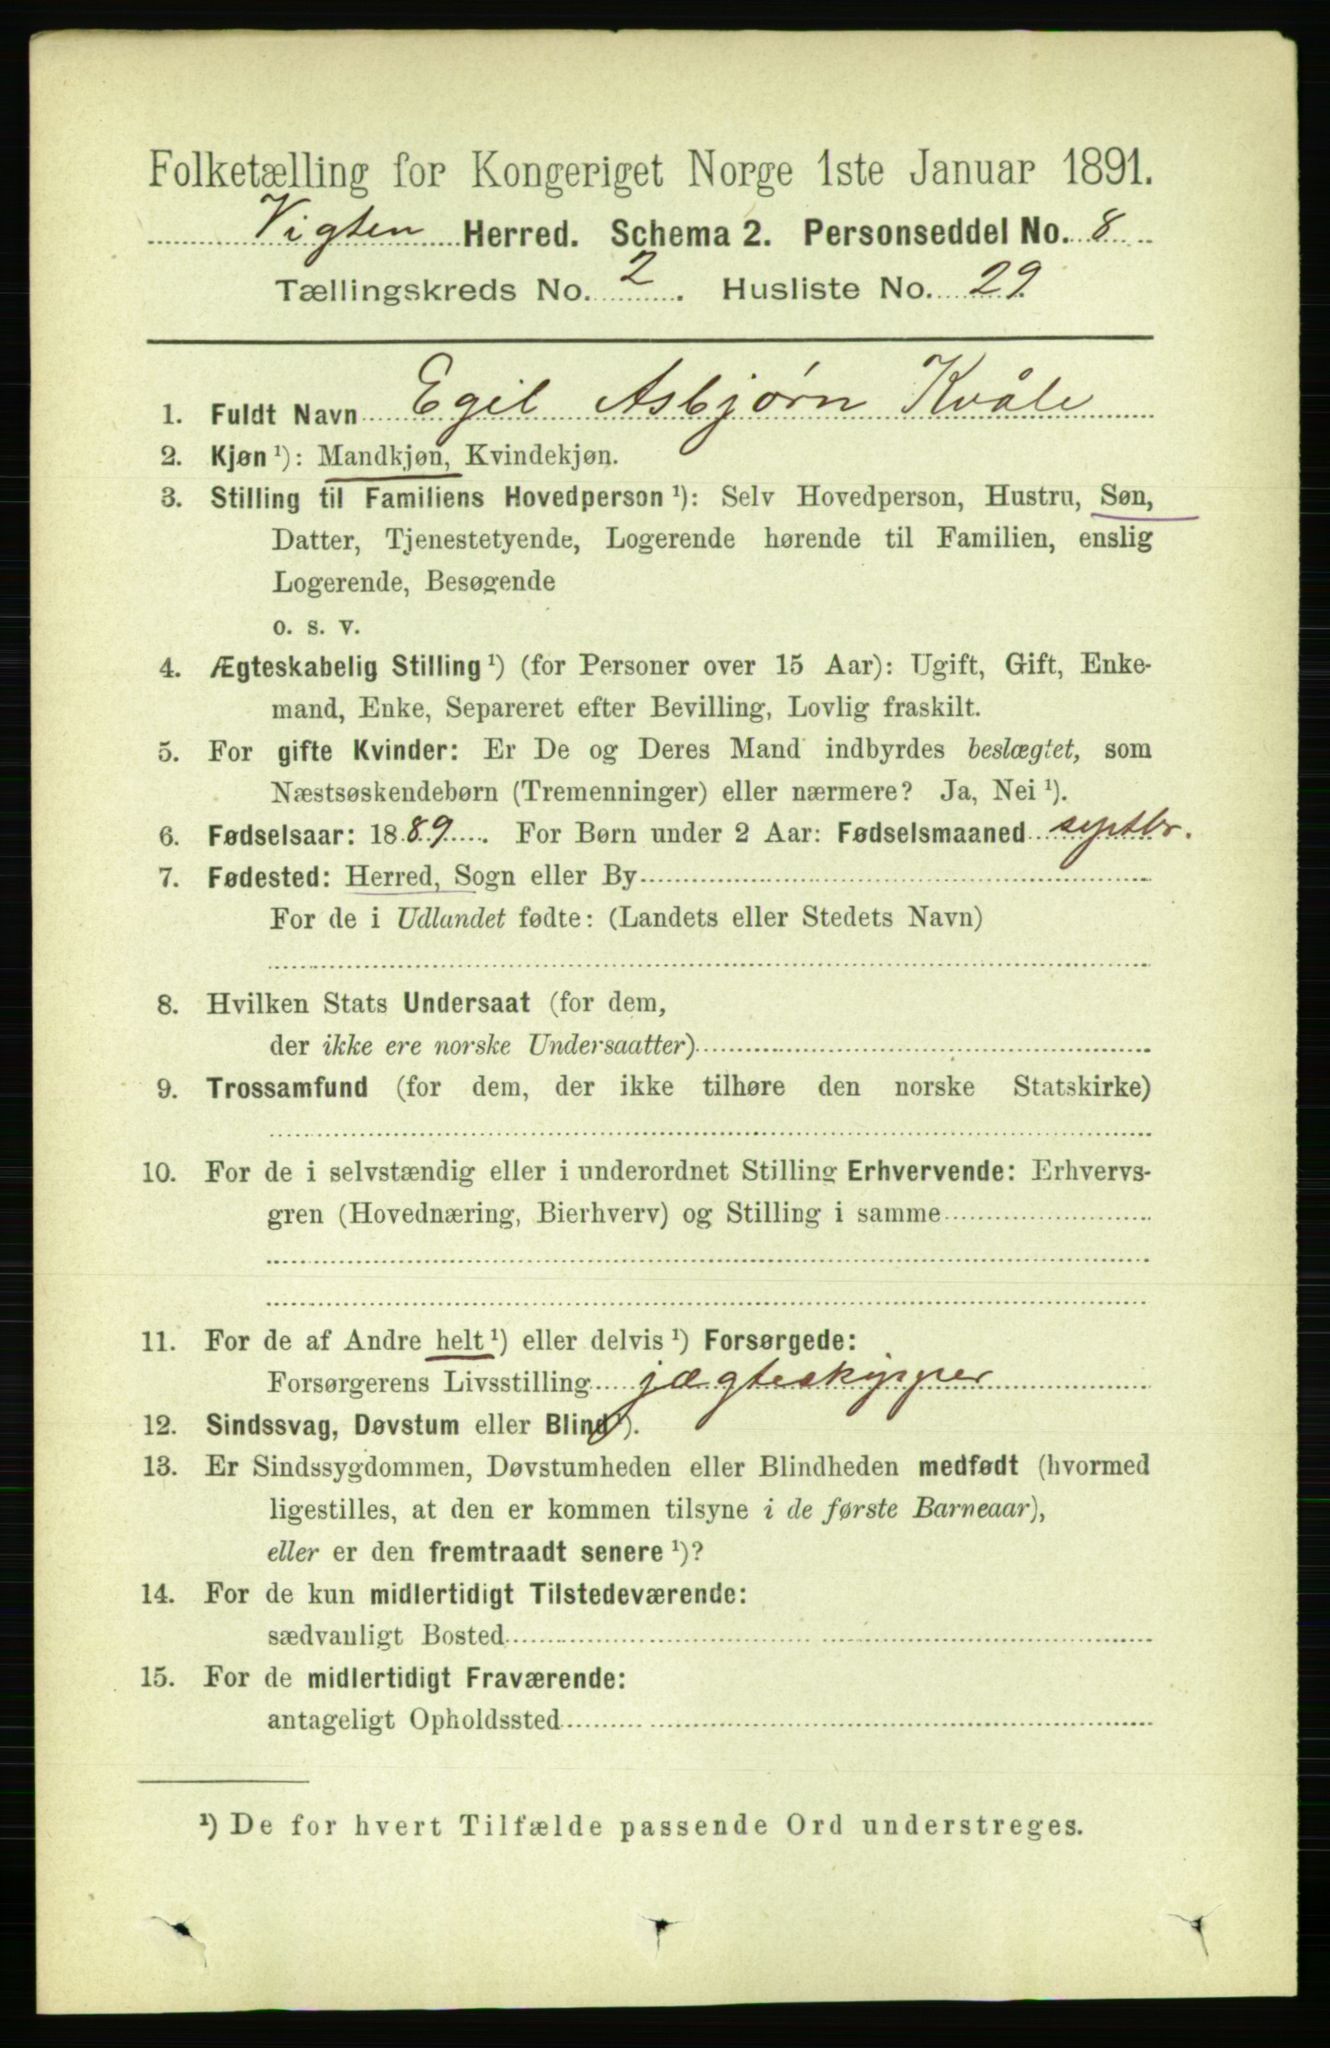 Folketælling for Kongeriget Norge 1ste Januar 1891.
Vigten Herred. Schema 2. Personseddel No. 8
Tællingskreds No. 2. Husliste No. 29
1. Fuldt Navn Egil Asbjørn Kvåle
2. Kjøn ¹): Mandkjøn, Kvindekjøn.
3. Stilling til Familiens Hovedperson ¹): Selv Hovedperson, Hustru, Søn,
Datter, Tjenestetyende, Logerende hørende til Familien, enslig
Logerende, Besøgende
o. s. v.
4. Ægteskabelig Stilling ¹) (for Personer over 15 Aar): Ugift, Gift, Enke-
mand, Enke, Separeret efter Bevilling, Lovlig fraskilt.
5. For gifte Kvinder: Er De og Deres Mand indbyrdes beslægtet, som
Næstsøskendebørn (Tremenninger) eller nærmere? Ja, Nei ¹).
6. Fødselsaar: 1889. For Børn under 2 Aar: Fødselsmaaned septbr.
7. Fødested: Herred, Sogn eller By
For de i Udlandet fødte: (Landets eller Stedets Navn)
8. Hvilken Stats Undersaat (for dem,
der ikke ere norske Undersaatter)
9. Trossamfund (for dem, der ikke tilhøre den norske Statskirke)
10. For de i selvstændig eller i underordnet Stilling Erhvervende: Erhvervs-
gren (Hovednæring, Bierhverv) og Stilling i samme
11. For de af Andre helt ¹) eller delvis ¹) Forsørgede:
Forsørgerens Livsstilling jægteskipper
12. Sindssvag, Døvstum eller Blind ¹).
13. Er Sindssygdommen, Døvstumheden eller Blindheden medfødt (hvormed
ligestilles, at den er kommen tilsyne i de første Barneaar),
eller er den fremtraadt senere ¹)?
14. For de kun midlertidigt Tilstedeværende:
sædvanligt Bosted
15. For de midlertidigt Fraværende:
antageligt Opholdssted
¹) De for hvert Tilfælde passende Ord understreges.